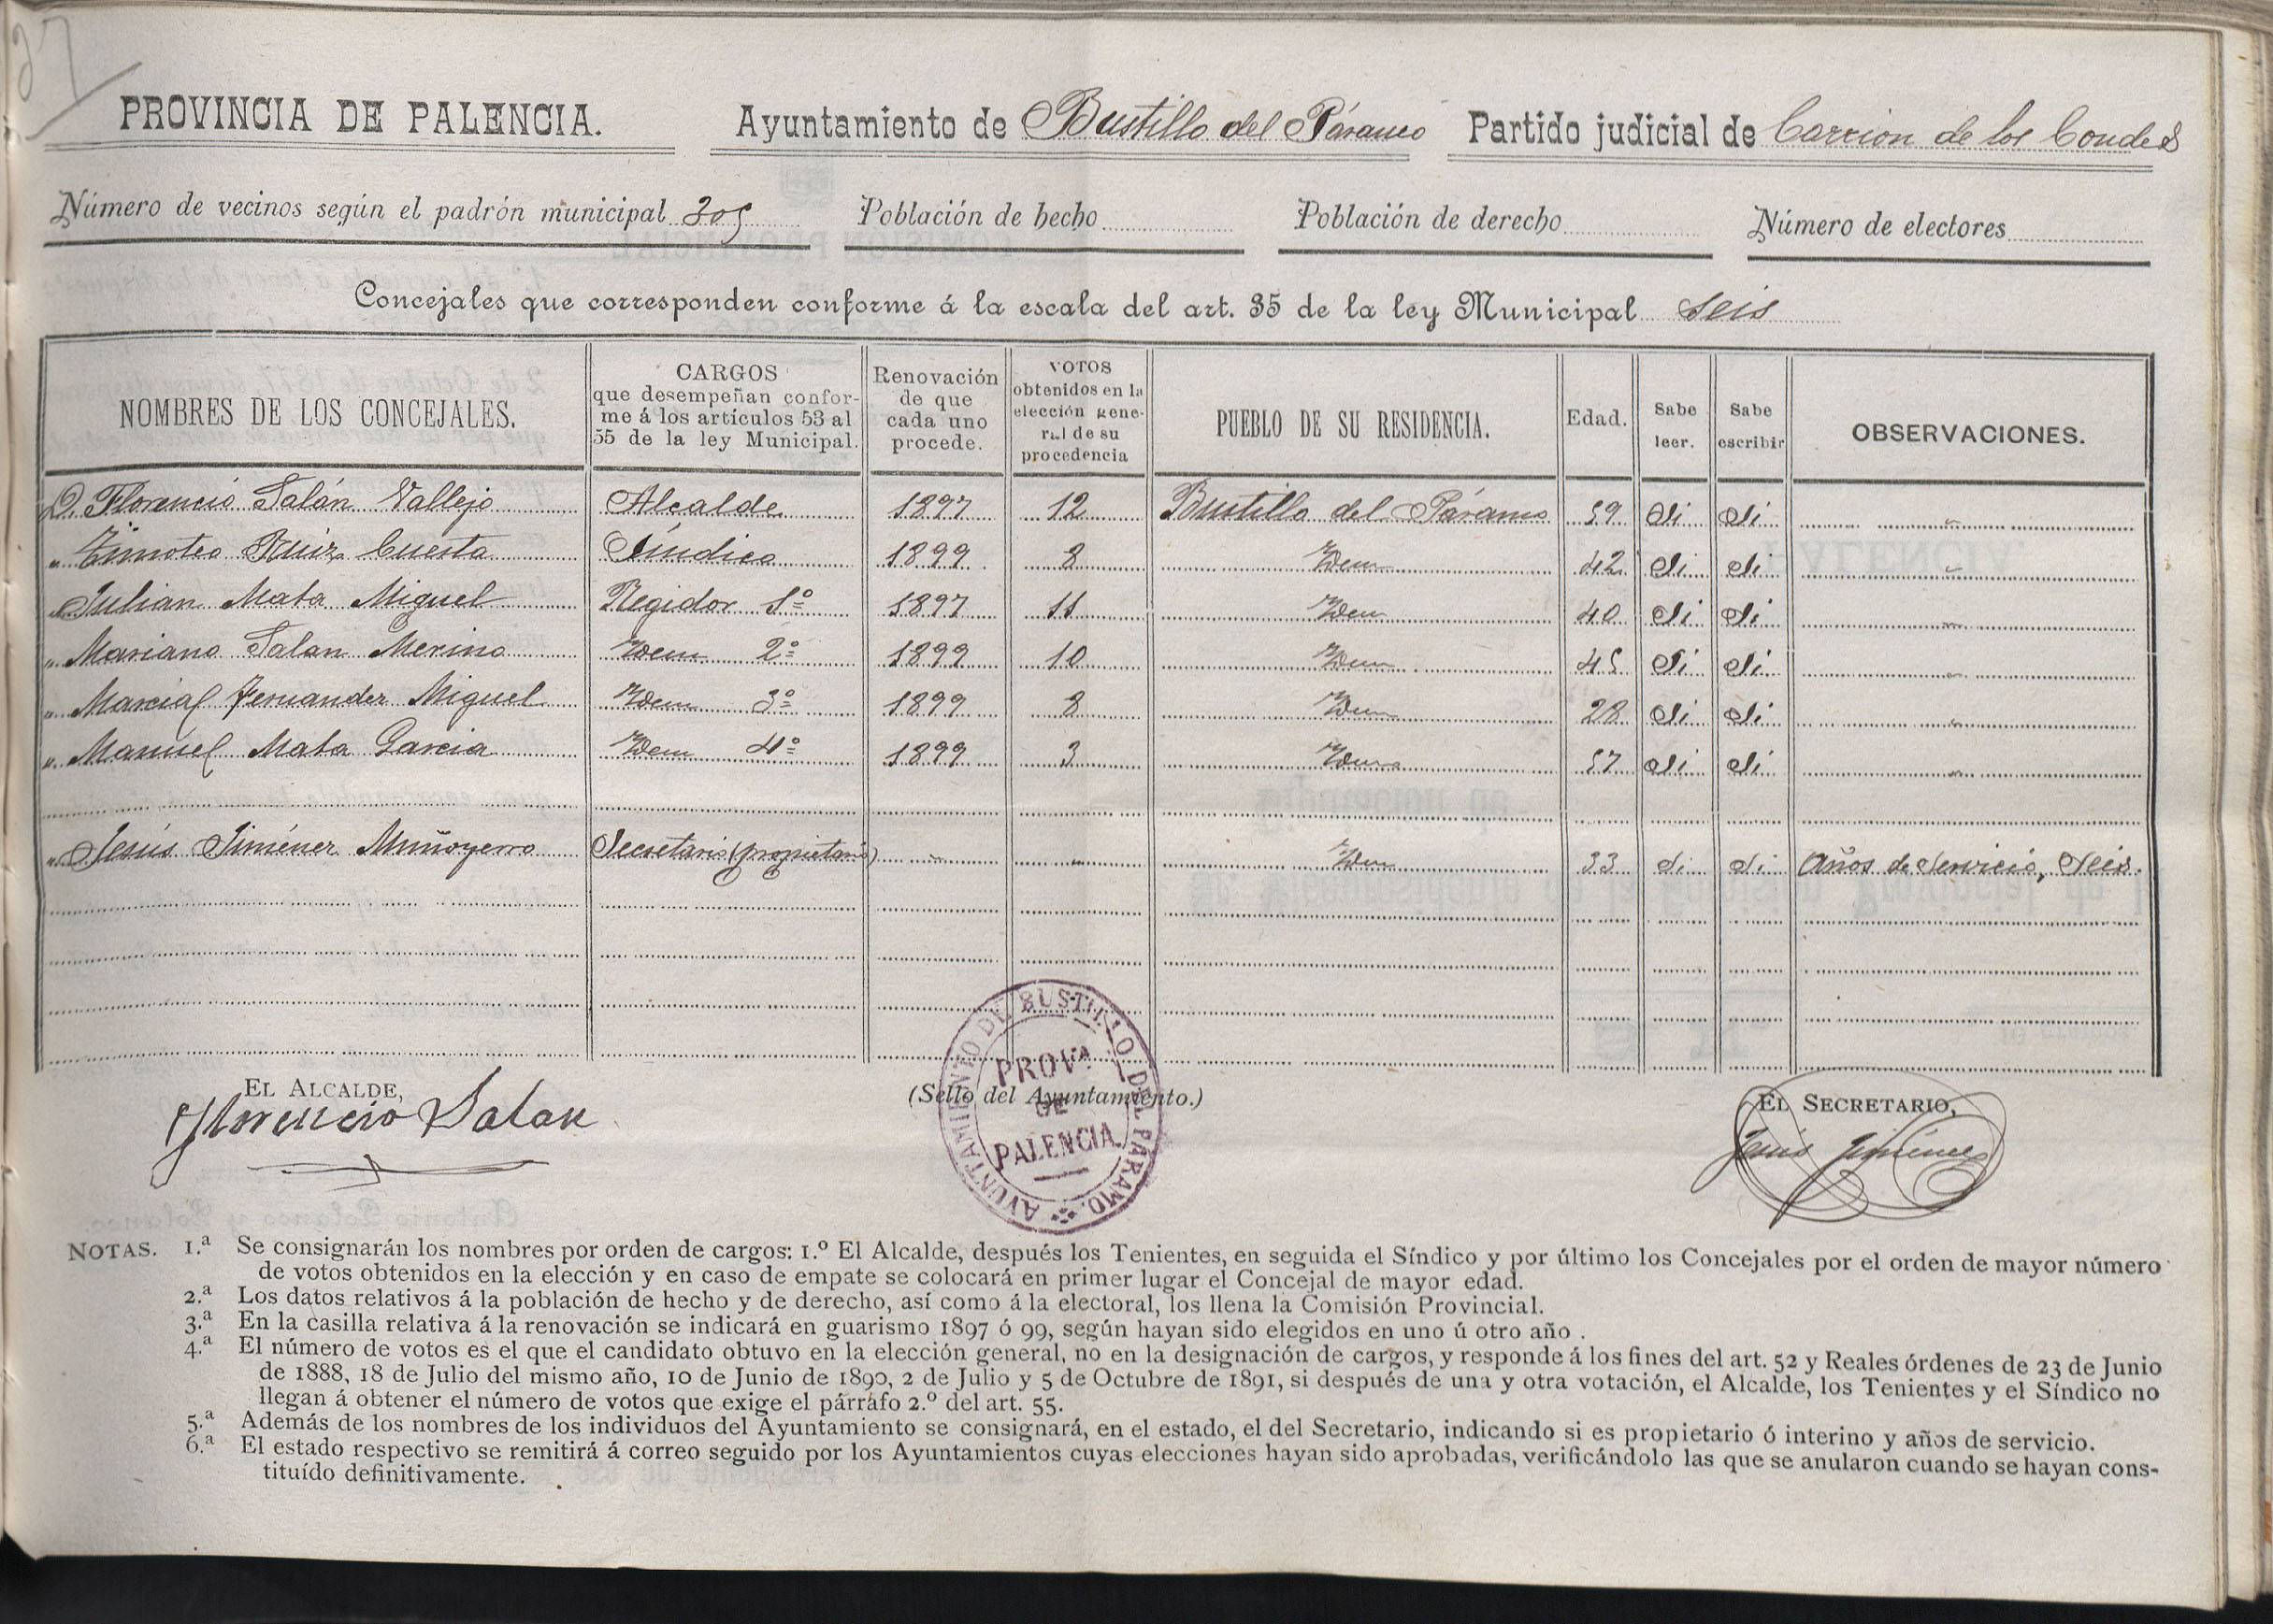 37
PROVINCIA DE PALENCIA. Ayuntamiento de Bustillo del Páramo Partido judicial de Carrion de los Condes
Número de vecinos según el padrón municipal 305 Población de hecho Población de derecho Número de electores
Concejales que corresponden conforme á la escala del art. 35 de la ley Municipal seis
NOMBRES DE LOS CONCEJALES. CARGOS que desempeñan conforme á los artículos 53 al 55 de la ley Municipal. Renovación de que cada uno procede. VOTOS obtenidos en la elección general de su procedencia PUEBLO DE SU RESIDENCIA. Edad. Sabe leer. Sabe escribir OBSERVACIONES.
D. Florencio Salán Vallejo Alcalde 1897 12 Bustillo del Páramo 59 Si Si "
" Timoteo Ruiz Cuesta Síndico 1899 8 Idem 42 Si Si "
" Julian Mata Miguel Regidor 1º 1897 11 Idem 40 Si Si "
" Mariano Salan Merino Idem 2º 1899 10 Idem 45 Si Si "
" Marcial Fernandez Miguel Idem 3º 1899 8 Idem 28 Si Si "
" Manuel Mata Garcia Idem 4º 1899 3 Idem 57 Si Si "
" Jesús Jiménez Muñoyerro Secretario (propietario) " " Idem 33 Si Si Años de Servicio, Seis.
EL ALCALDE,
Florencio Salan
(Sello del Ayuntamiento.)
AYUNTAMIENTO DE BUSTILLO DEL PARAMO.
PROVª
DE
PALENCIA.
EL SECRETARIO,
Jesús Jiménez
NOTAS. 1.ª Se consignarán los nombres por orden de cargos: 1.º El Alcalde, después los Tenientes, en seguida el Síndico y por último los Concejales por el orden de mayor número
de votos obtenidos en la elección y en caso de empate se colocará en primer lugar el Concejal de mayor edad.
2.ª Los datos relativos á la población de hecho y de derecho, así como á la electoral, los llena la Comisión Provincial.
3.ª En la casilla relativa á la renovación se indicará en guarismo 1897 ó 99, según hayan sido elegidos en uno ú otro año .
4.ª El número de votos es el que el candidato obtuvo en la elección general, no en la designación de cargos, y responde á los fines del art. 52 y Reales órdenes de 23 de Junio
de 1888, 18 de Julio del mismo año, 10 de Junio de 1890, 2 de Julio y 5 de Octubre de 1891, si después de una y otra votación, el Alcalde, los Tenientes y el Síndico no
llegan á obtener el número de votos que exige el párrafo 2.º del art. 55.
5.ª Además de los nombres de los individuos del Ayuntamiento se consignará, en el estado, el del Secretario, indicando si es propietario ó interino y años de servicio.
6.ª El estado respectivo se remitirá á correo seguido por los Ayuntamientos cuyas elecciones hayan sido aprobadas, verificándolo las que se anularon cuando se hayan cons-
tituído definitivamente.